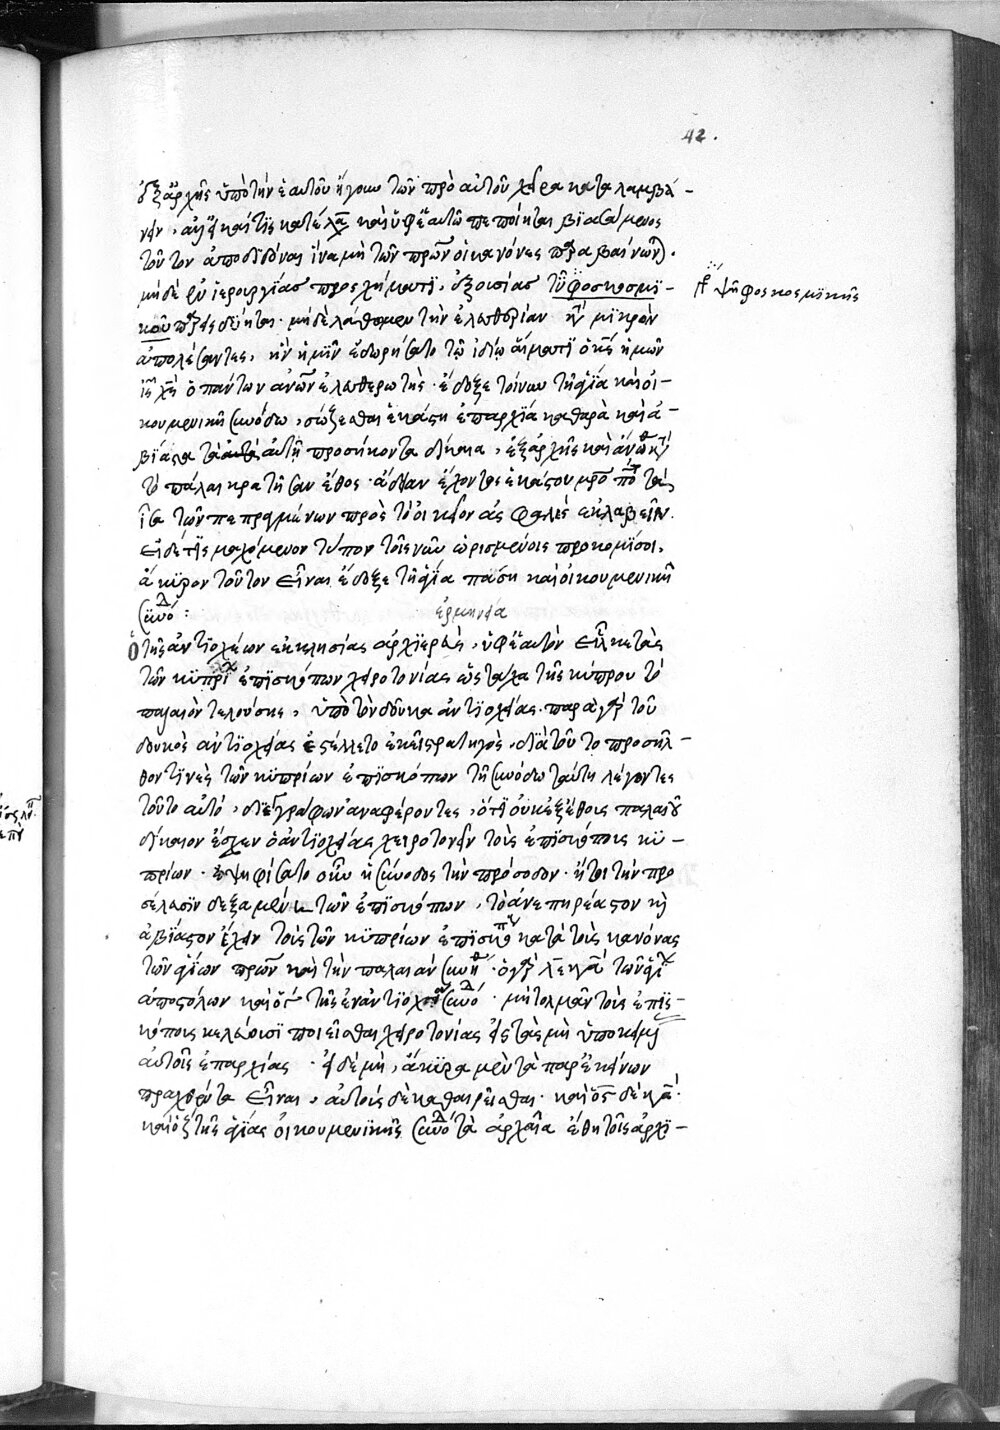 42.
ἐξ ἀρχῆς ὑπὸ τὴν ἑαυτοῦ ἤγουν τῶν πρὸ αὐτοῦ χεῖρα καταλαμβά-
νειν. ἀλλ' εἰ καί τις κατέλαβε καὶ ὑφ' ἑαυτῶ πεποίηται βιασάμενος
τοῦτον ἀποδιδόναι ἵνα μὴ τῶν πρων οἱ κανόνες παραβαίνωνται.
μηδὲ ἐν ἱερουργίας προσχήματι, ἐξουσίας τύφος κοσμι-
κοῦ παρεισδύηται. μηδὲ λάθωμεν τὴν ἐλευθερίαν κατὰ μικρὸν
ἀπολέσαντες, ἣν ἡμῖν ἐδωρήσατο τῶ ἰδίω αἵματι ὁ κς ἡμῶν
ις χς ὁ πάντων ανων ἐλευθερωτής. ἔδοξε τοίνυν τῆ ἁγία καὶ οἰ-
κουμενικῆ συνόδω, σώζεσθαι ἑκάστη ἐπαρχία καθαρὰ καὶ ἀ-
βίαστα τὰ αὐτῆ προσήκοντα δίκαια, ἐξ ἀρχῆς καὶ ἄνωθεν κατὰ
τὸ πάλαι κρατῆσαν ἔθος. ἄδειαν ἔχοντος ἑκάστου μρο πο τὰ
ἴσα τῶν πεπραγμένων πρὸς τὸ οἰκεῖον ἀσφαλὲς ἐκλαβεῖν.
εἰ δέ τις μαχόμενον τύπον τοῖς νῦν ὡρισμένοις προκομίσοι,
ἄκυρον τοῦτον εἶναι ἔδοξε τῆ ἁγία πάση καὶ οἰκουμενικῆ
συνό:
ἑρμηνεία
Ὁ τῆς ἀντιοχέων ἐκκλησίας ἀρχιερεὺς, ὑφ' ἑαυτὸν εἷλκε τὰς
τῶν κυπρί ἐπισκόπων χειροτονίας ὡς τάχα τῆς κύπρου τὸ
παλαιὸν τελούσης, ὑπὸ τὸν δοῦκα ἀντιοχείας. παρὰ γὰρ τοῦ
δουκὸς ἀντιοχείας ἐστέλλετο ἐκεῖ στρατηγός. διὰ τοῦτο προσῆλ-
θόν τινες τῶν κυπρίων ἐπισκόπων τῆ συνόδω ταύτη λέγοντες
τοῦτο αὐτό, δι' ἐγγράφων ἀναφέροντες, ὅτι οὐκ ἐξ ἔθους παλαιοῦ
δίκαιον ἔσχεν ὁ ἀντιοχείας χειροτονεῖν τοῖς ἐπισκόποις κυ-
πρίων. ἐψηφίσατο οὖν ἡ σύνοδος τὴν πρόσοδον. ἤτοι τὴν προ
σέλασιν δεξαμένη τῶν ἐπισκόπων, τὸ ἀνεπηρέαστον καὶ
ἀβίαστον ἔχειν τοὺς τῶν κυπρίων ἐπισκόπους κατὰ τοὺς κανόνας
τῶν ἁγίων πρων καὶ τὴν παλαιὰν συνήθ. ὁ γὰρ λε κα τῶν ἁγί
ἀποστόλων καὶ ὁ τῆς ἐν ἀντιοχεία συνό. μὴ τολμᾶν τοὺς ἐπισ-
κόπους κελεύουσι ποιεῖσθαι χειροτονίας εἰς τὰς μὴ ὑποκειμέ
αὐτοῖς ἐπαρχίας. εἰ δὲ μὴ, ἄκυρα μὲν τὰ παρ' ἐκείνων
πραχθέντα εἶναι, αὐτοὺς δὲ καθαιρεῖσθαι. καὶ ὁ ς δὲ κα.
καὶ ὁ ζ τῆς ἁγίας οἰκουμενικῆς συνό τὰ ἀρχαῖα ἔθη τοῖς ἀρχι-
γρ ψῆφος κοσμικῆς